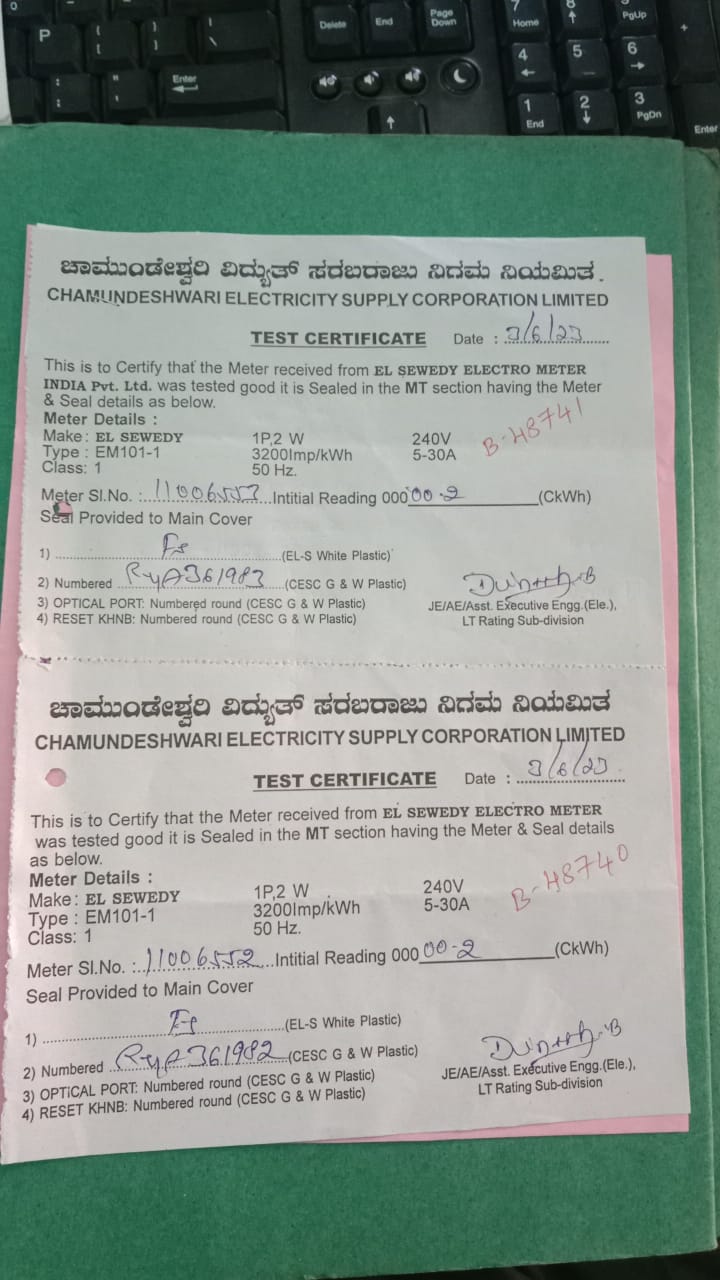 P
Delete
End
Page Down
7 Home
8
9 PgUp
+
Enter
4
5
6
1 End
2
3 PgDn
Enter
ಚಾಮುಂಡೇಶ್ವರಿ ವಿದ್ಯುತ್ ಸರಬರಾಜು ನಿಗಮ ನಿಯಮಿತ.
CHAMUNDESHWARI ELECTRICITY SUPPLY CORPORATION LIMITED
TEST CERTIFICATE Date : 3/6/23
This is to Certify that the Meter received from EL SEWEDY ELECTRO METER
INDIA Pvt. Ltd. was tested good it is Sealed in the MT section having the Meter
& Seal details as below.
Meter Details :
Make : EL SEWEDY 1P,2 W 240V B-48741
Type : EM101-1 3200Imp/kWh 5-30A
Class: 1 50 Hz.
Meter Sl.No. : 11006553 Intitial Reading 000 00-2 (CkWh)
Seal Provided to Main Cover
1) (EL-S White Plastic)
2) Numbered RyA361983 (CESC G & W Plastic)
3) OPTICAL PORT: Numbered round (CESC G & W Plastic)
4) RESET KHNB: Numbered round (CESC G & W Plastic)
JE/AE/Asst. Executive Engg.(Ele.),
LT Rating Sub-division
ಚಾಮುಂಡೇಶ್ವರಿ ವಿದ್ಯುತ್ ಸರಬರಾಜು ನಿಗಮ ನಿಯಮಿತ
CHAMUNDESHWARI ELECTRICITY SUPPLY CORPORATION LIMITED
TEST CERTIFICATE Date : 3/6/23
This is to Certify that the Meter received from EL SEWEDY ELECTRO METER
was tested good it is Sealed in the MT section having the Meter & Seal details
as below.
Meter Details :
Make : EL SEWEDY 1P,2 W 240V B-48740
Type : EM101-1 3200Imp/kWh 5-30A
Class: 1 50 Hz.
Meter Sl.No. : 11006552 Intitial Reading 000 00-2 (CkWh)
Seal Provided to Main Cover
1) (EL-S White Plastic)
2) Numbered RyA361982 (CESC G & W Plastic)
3) OPTICAL PORT: Numbered round (CESC G & W Plastic)
4) RESET KHNB: Numbered round (CESC G & W Plastic)
JE/AE/Asst. Executive Engg.(Ele.),
LT Rating Sub-division